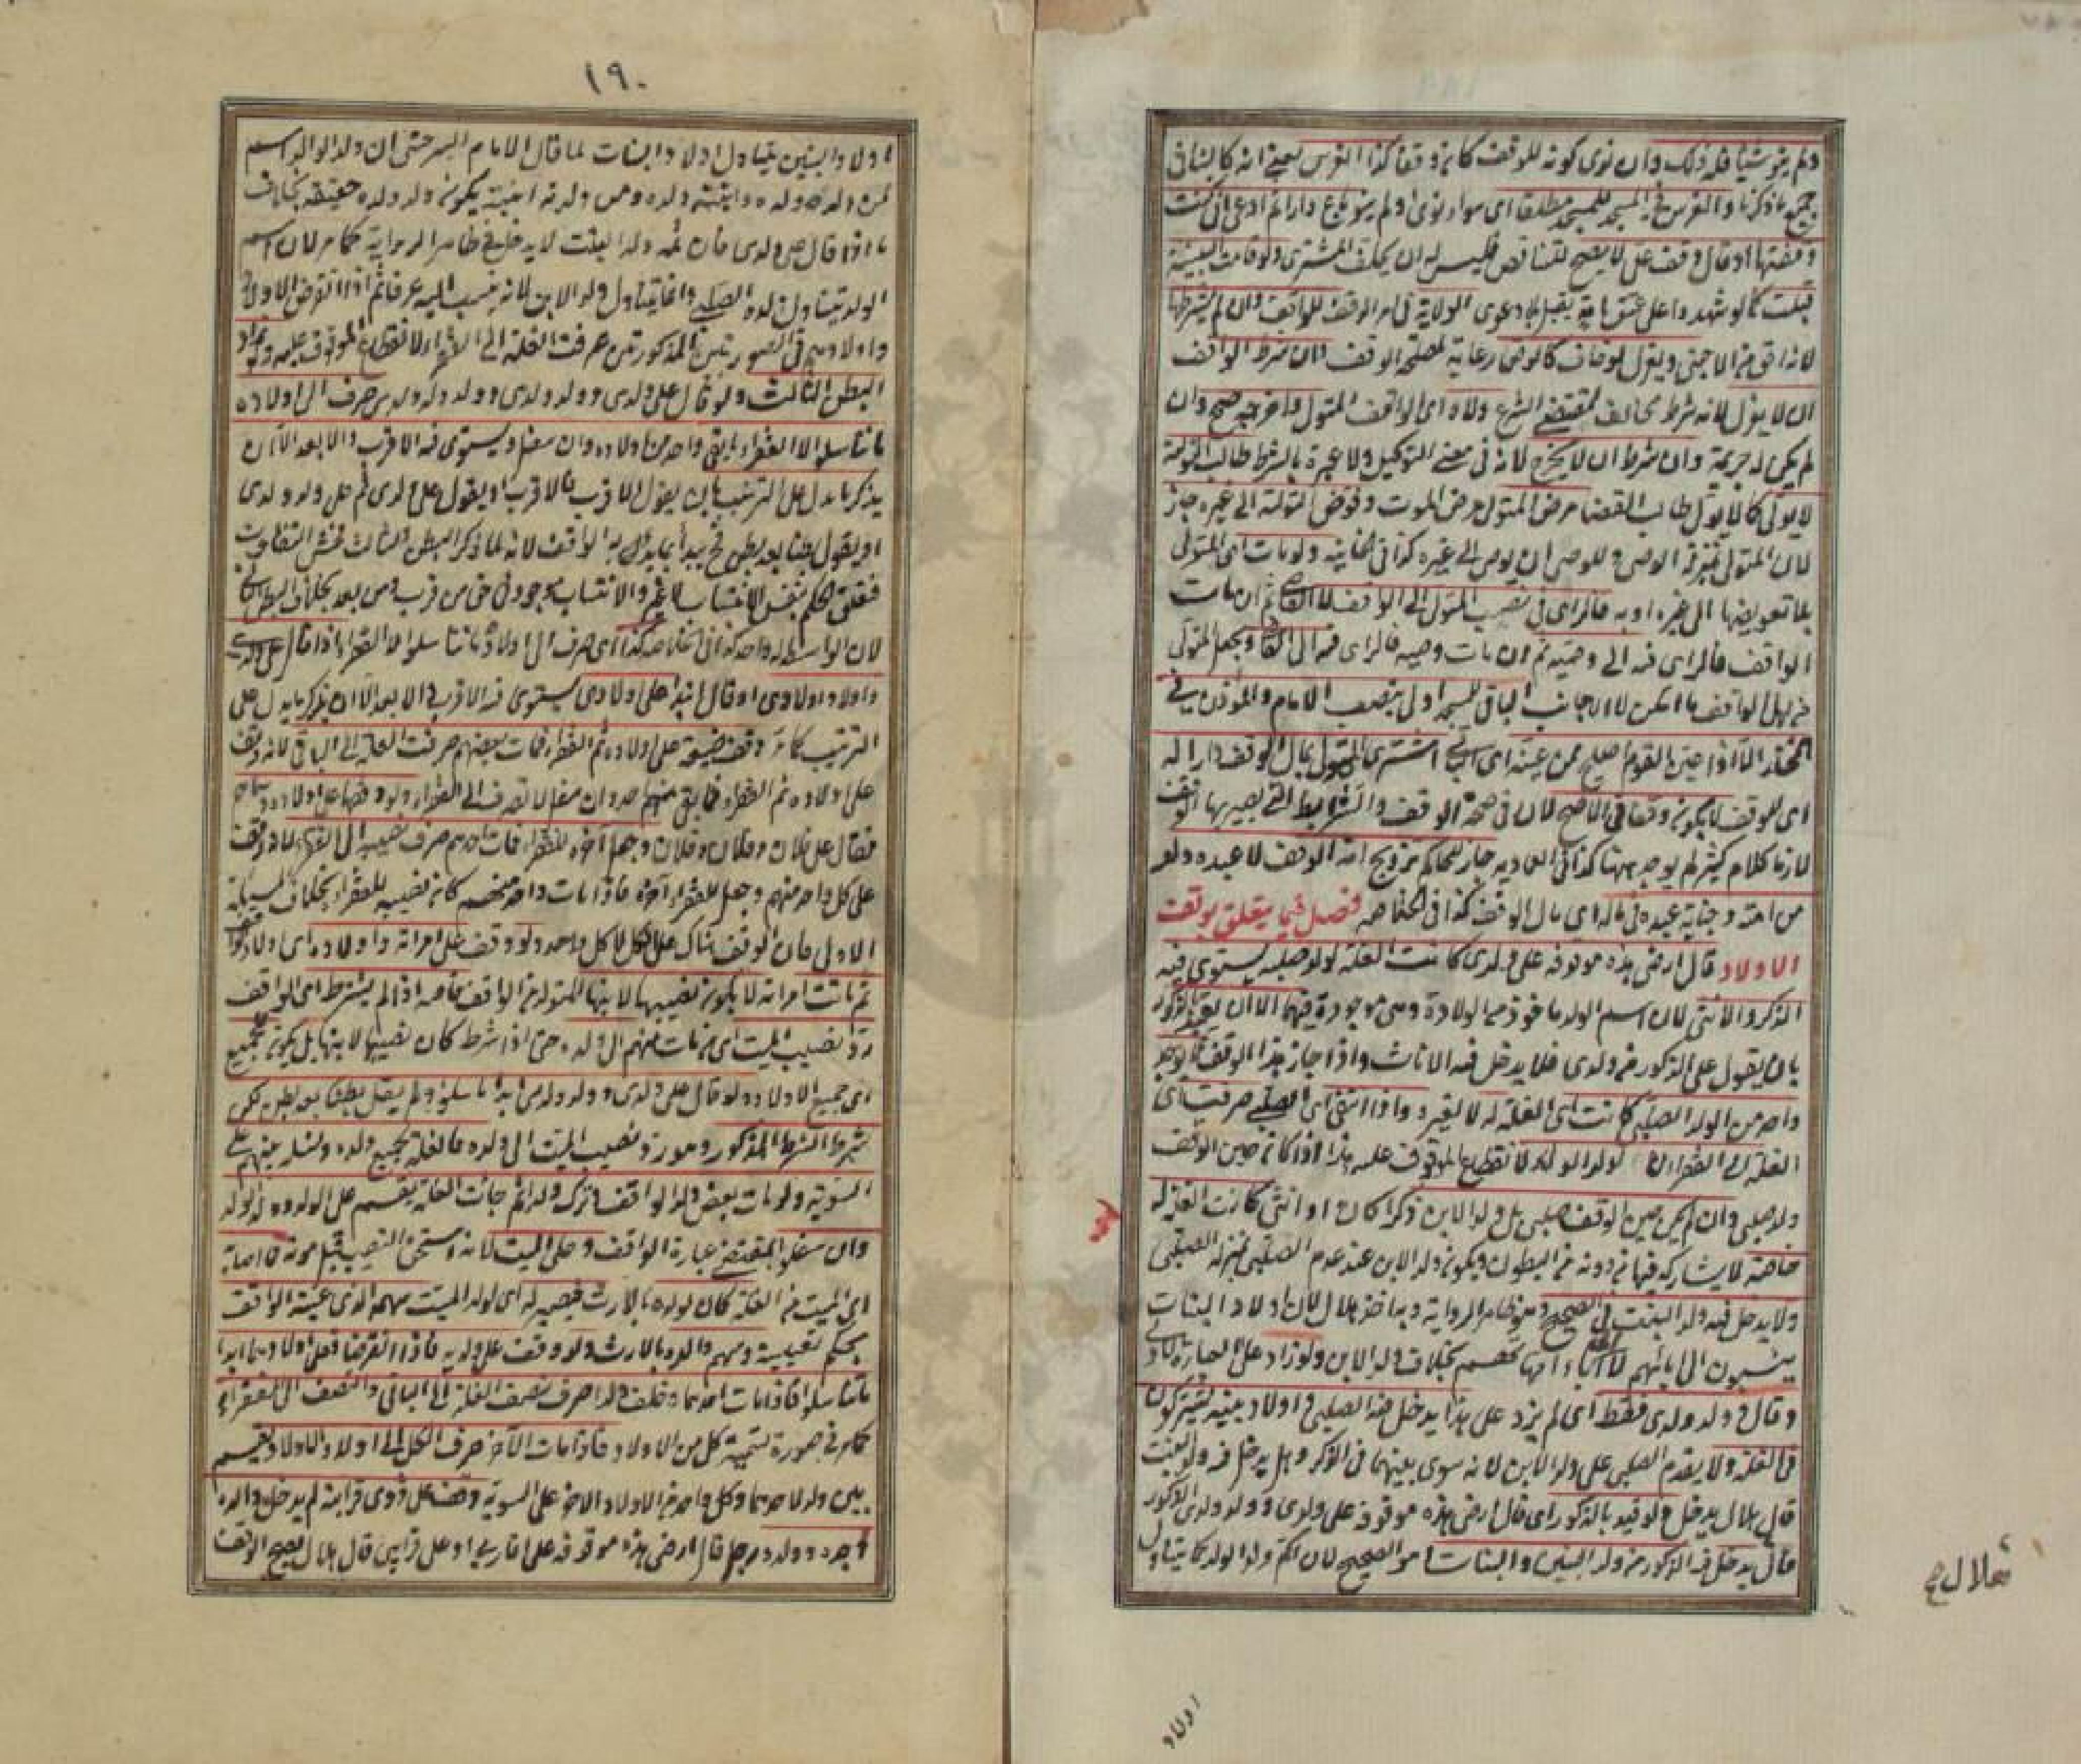 ولم ينو شيئا فله ذلك وان نوى كونه للوقف كان وقفا كذا الغرس يعني انه كالبناء في
جميع ما ذكرنا والغرس في المسجد للمسجد مطلقا اى سواء نوى اولم ينو باع دارا ثم ادعى انى كنت
وقفتها او قال وقف على لا يصح للتناقض فليس له ان يحلف المشترى ولو قامت البينة
قبلت كما لو شهدوا على عتق امة يقبل بلا دعوى الولاية في امر الوقف للواقف وان لم يشترطها
لانه احق من الاجنبي ويعزل لو خان كالوصي رعاية لمصلحة الوقف وان شرط الواقف
ان لا يعزل لانه شرط مخالف لمقتضى الشرع ولاه اى الواقف المتولى واخرجه صح وان
لم يكن له جريمة وان شرط ان لا يخرج لانه في معنى التوكيل ولا عبرة بالشرط طالب التولية
لا يولى كما لا يولى طالب القضاء مرض المتولى مرض الموت وفوض التولية الى غيره جاز
لان المتولى بمنزلة الوصي وللوصي ان يوصى الى غيره كذا في الخانية ولو مات اى المتولى
بلا تفويضها الى غيره اوبه فالراى في نصب المتولى الى الواقف لا القاضي ثم ان مات
الواقف فالراى فيه الى وصيه ثم ان مات وصيه فالراى فيه الى القاضي ويجعل المتولى
من اهل الواقف ما امكن لا الاجانب الباني للمسجد اولى بنصب الامام والمؤذن في
المختار الا اذا عين القوم اصلح ممن عينه اى الباني اشترى المتولى بمال الوقف دارا له
اى للوقف لا يكون وقفا في الاصح لان في صحة الوقف والشرائط التي يصير بها الوقف
لازما كلام كثير لم يوجد ههنا كذا في العمادية جاز للحاكم تزويج امة الوقف لا عبده ولو
من امته وجناية عبده في ماله اى مال الوقف كذا في الخلاصة فصل فيما يتعلق بوقف
الاولاد قال ارضي هذه موقوفة على ولدى كانت الغلة لولد صلبه يستوى فيه
الذكر والانثى لان اسم الولد ماخوذ من الولادة وهى موجودة فيهما الا ان يقيد بالذكور
بان يقول على الذكور من ولدى فلا يدخل فيه الاناث واذا جاز هذا الوقف فان وجد
واحد من الولد الصلبي كانت اى الغلة له لا لغيره واذا انتفى اى الصلبي صرفت اى
الغلة الى الفقراء لا لولد الولد لانقطاع الموقوف عليه هذا اذا كان حين الوقف
ولد صلبي وان لم يكن حين الوقف صلبي بل ولد الابن ذكرا كان او انثى كانت الغلة له
خاصة لا يشاركه فيها من دونه من البطون ويكون ولد الابن عند عدم الصلبي بمنزلة الصلبي
ولا يدخل فيه ولد البنت في الصحيح وهو ظاهر الرواية وبه اخذ هلال لان اولاد البنات
ينسبون الى ابائهم لا الى اباء امهاتهم بخلاف ولد الابن ولو زاد على العبارة
وقال وولد ولدى فقط اى لم يزد على هذا يدخل فيه الصلبي واولاد بنيه يشتركون
في الغلة ولا يقدم الصلبي على ولد الابن لانه سوى بينهما في الذكر وهل يدخل فيه ولد البنت
قال هلال يدخل ولو قيد بالذكور اى قال ارضي هذه موقوفة على ولدى وولد ولدى الذكور
قال يدخل فيه الذكور من ولد البنين والبنات هو الصحيح لان اسم ولد الولد كما يتناول
اولاد
١٩٠
اولاد البنين يتناول اولاد البنات لما قال الامام السرخسي ان ولد الولد اسم
لمن ولده ولده وابنته ولده ومن ولدته ابنته يكون ولد ولده حقيقة بخلاف
ما اذا قال على ولدى فان ثمة ولد البنت لا يدخل في ظاهر الرواية كما مر لان اسم
الولد يتناول ولده الصلبي وانما يتناول ولد الابن لانه ينسب اليه عرفا ثم اذا انقرض الاولاد
واولادهم في الصورتين المذكورتين صرفت الغلة الى الفقراء لانقطاع الموقوف عليه ولو زاد
البطن الثالث ولو قال على ولدى وولد ولدى وولد ولد ولدى صرف الى اولاده
ما تناسلوا لا الفقراء ما بقى واحد من اولاده وان سفل ويستوى فيه الاقرب والابعد الا ان
يذكر ما يدل على الترتيب بان يقول الاقرب فالاقرب او يقول على ولدى ثم على ولد ولدى
او يقول بطنا بعد بطن فحينئذ يبدأ بما بدأ به الواقف لانه لما ذكر البطن الثالث فحش التفاوت
فتعلق الحكم بنفس الانتساب لا غير والانتساب موجود في حق من قرب ومن بعد بخلاف البطن الثاني
لان الواسطة واحدة كذا في الخلاصة كذا اى صرف الى اولاده ما تناسلوا لا الفقراء اذا قال على ولدى
واولاد اولادى او قال ابتداء على اولادى يستوى فيه الاقرب والابعد الا ان يذكر ما يدل على
الترتيب كما مر وقف ضيعة على اولاده ثم الفقراء فمات بعضهم صرفت الغلة الى الباقي لانه وقف
على اولاده ثم الفقراء فما بقى منهم احد وان سفل لا تصرف الى الفقراء ولو وقفها على اولاده وسماهم
فقال على فلان وفلان وفلان وجعل آخره للفقراء فمات احدهم صرف نصيبه الى الفقراء لانه وقف
على كل واحد منهم وجعل للفقراء آخره فاذا مات واحد منهم كان نصيبه للفقراء بخلاف المسألة
الاولى فان الوقف هناك على الكل لا كل واحد ولو وقف على امراته واولاده اى اولاد الواقف
ثم ماتت امراته لا يكون نصيبها لابنها المتولد من الواقف خاصة اذا لم يشترط اى الواقف
رد نصيب الميت اى من مات منهم الى ولده حتى اذا شرط كان نصيبها لابنها بل يكون للجميع
اى جميع الاولاد ولو قال على ولدى وولد ولدى ابدا ما تناسلوا ولم يقل بطنا بعد بطن لكن
شرط الشرط المذكور وهو رد نصيب الميت الى ولده فالغلة لجميع ولده ونسله بينهم على
السوية ولو مات بعض ولد الواقف وترك ولدا ثم جائت الغلة يقسم على الولد وولد الولد
وان سفلوا بمقتضى عبارة الواقف وعلى الميت لانه استحق النصيب قبل موته فما اصابه
اى الميت من الغلة كان لولده بالارث فيصير له اى لولد الميت سهمه الذى عينه الواقف
بحكم تعيينه وسهم والده بالارث ولو وقف على ولديه فاذا انقرضا فعلى اولادهما ابدا
ما تناسلوا فاذا مات احدهما وخلف ولدا صرف نصف الغلة الى الباقي والنصف الى الفقراء
كما مر في صورة تسمية كل من الاولاد فاذا مات الآخر صرف الكل الى اولاد الاولاد يقسم
بين ولد احدهما وكل واحد من الاولاد الآخر على السوية وقف على ذوى قرابته لم يدخل والده
وجده وولده رجل قال ارضي هذه موقوفة على اقاربي او على قرابتي قال هلال يصح الوقف